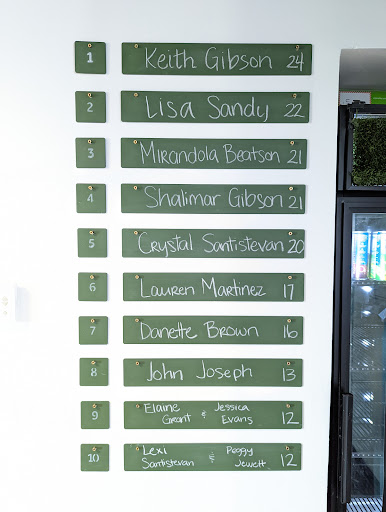 1 Keith Gibson 24
2 Lisa Sandy 22
3 Mirandola Beatson 21
4 Shalimar Gibson 21
5 Crystal Santistevan 20
6 Lauren Martinez 17
7 Danette Brown 16
8 John Joseph 13
9 Elaine Grant & Jessica Evans 12
10 Lexi Santistevan & Peggy Jewett 12